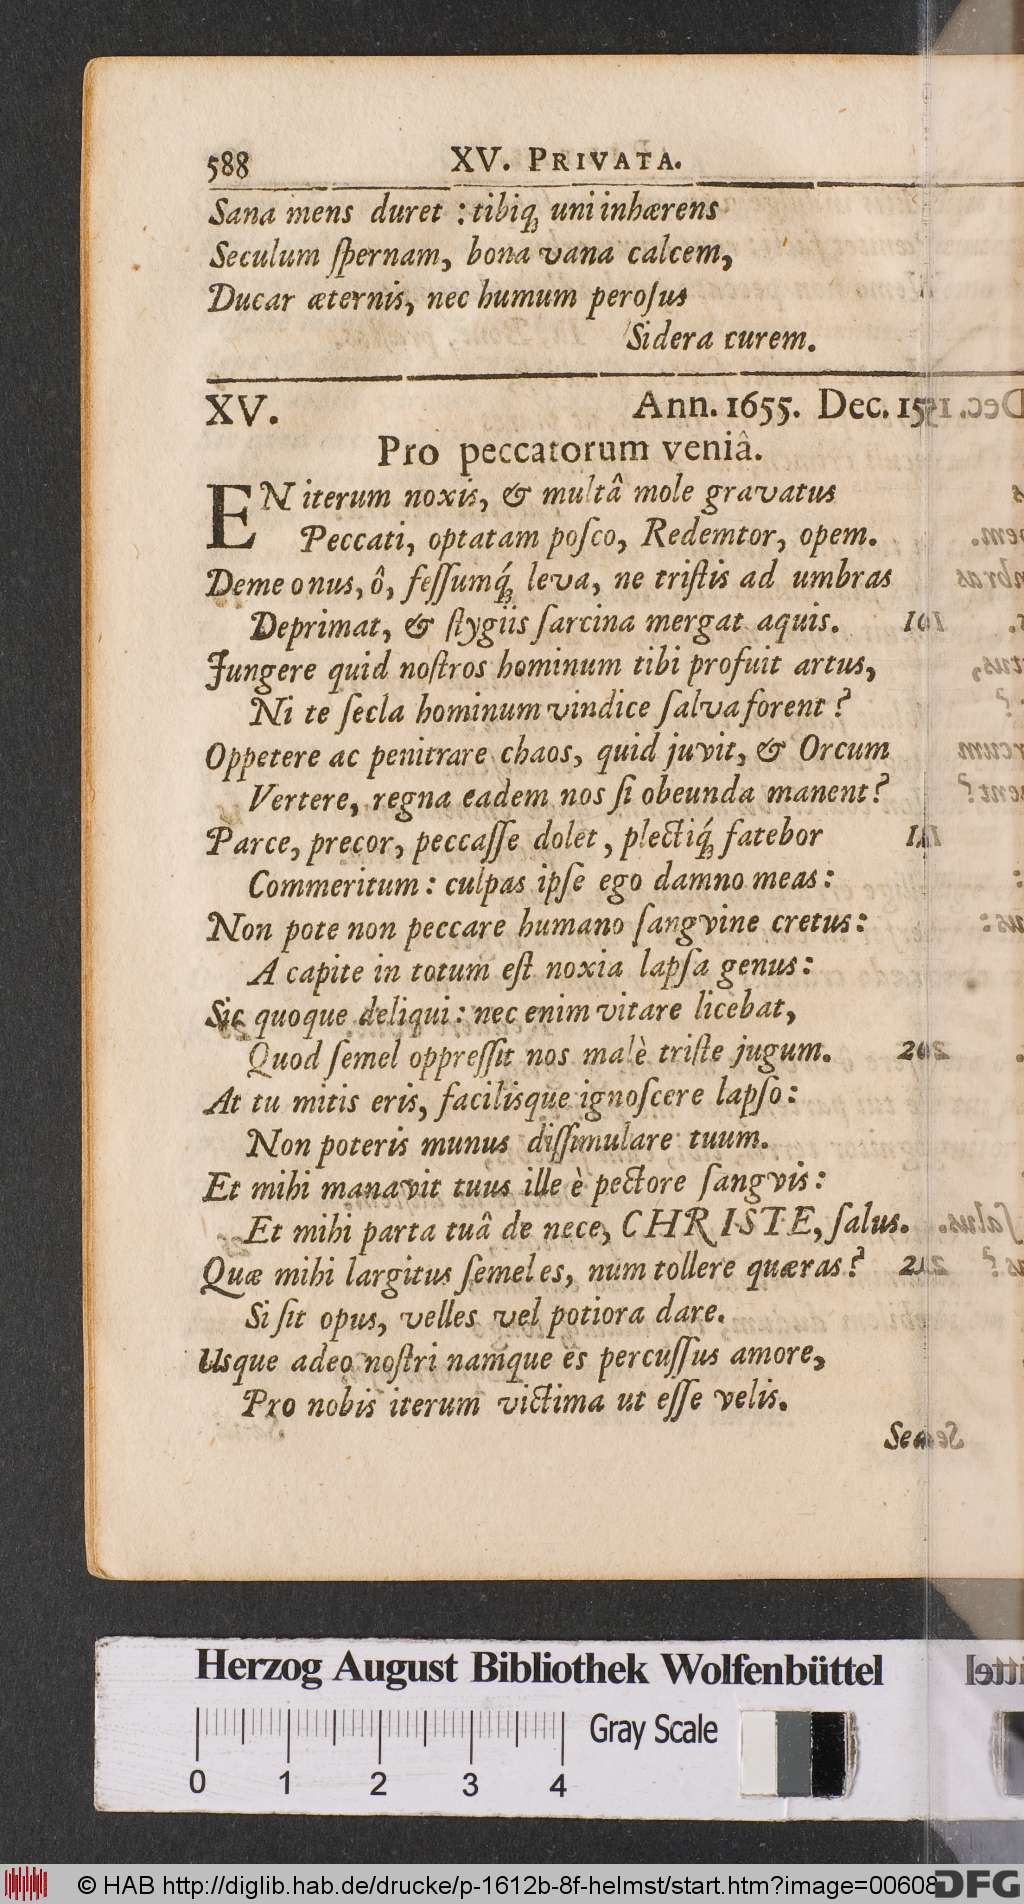 588 XV. PRIVATA.
Sana mens duret : tibiq́ꝫ uni inhærens
Seculum ſpernam, bona vana calcem,
Ducar æternis, nec humum peroſus
Sidera curem.
XV. Ann. 1655. Dec.
Pro peccatorum veniâ.
EN iterum noxis, & multâ mole gravatus
Peccati, optatam poſco, Redemtor, opem.
Deme onus, ô, feſſumq́ꝫ leva, ne triſtis ad umbras
Deprimat, & ſtygiis ſarcina mergat aquis.
Jungere quid noſtros hominum tibi profuit artus,
Ni te ſecla hominum vindice ſalva forent?
Oppetere ac penitrare chaos, quid juvit, & Orcum
Vertere, regna eadem nos ſi obeunda manent?
Parce, precor, peccaſſe dolet, plectiq́ꝫ fatebor
Commeritum: culpas ipſe ego damno meas:
Non pote non peccare humano ſangvine cretus:
A capite in totum eſt noxia lapſa genus:
Sic quoque deliqui: nec enim vitare licebat,
Quod ſemel oppreſſit nos malè triſte jugum.
At tu mitis eris, facilisque ignoſcere lapſo:
Non poteris munus diſſimulare tuum.
Et mihi manavit tuus ille è pectore ſangvis:
Et mihi parta tuâ de nece, CHRISTE, ſalus.
Quæ mihi largitus ſemel es, num tollere quæras?
Si ſit opus, velles vel potiora dare.
Usque adeo noſtri namque es percuſſus amore,
Pro nobis iterum victima ut eſſe velis.
Herzog August Bibliothek Wolfenbüttel
Gray Scale
0 1 2 3 4
© HAB http://diglib.hab.de/drucke/p-1612b-8f-helmst/start.htm?image=00608
DFG